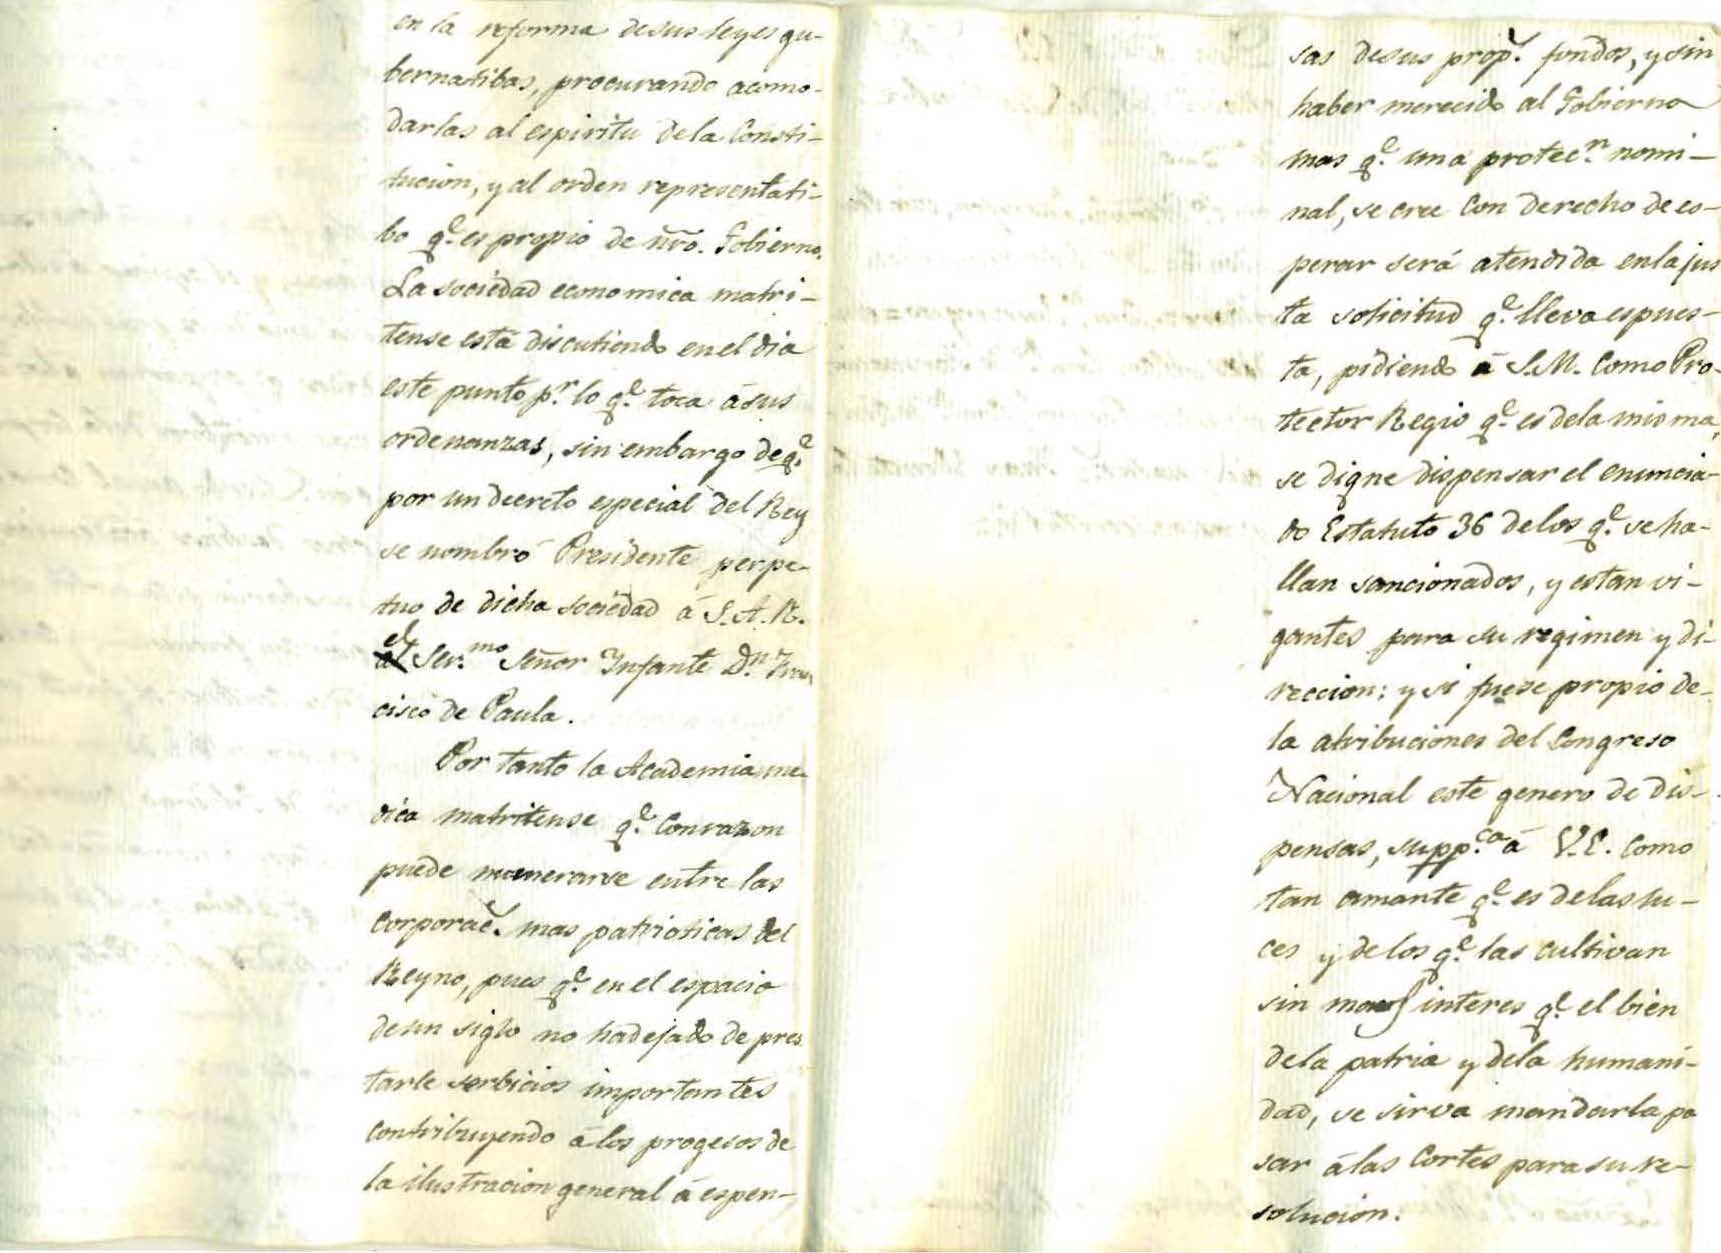 en la reforma de sus leyes gu-
bernatibas, procurando acomo-
darlas al espiritu de la Consti-
tucion, y al orden representati-
bo q.e es propio de ñro. Gobierno.
La sociedad economica matri-
tense está discutiendo en el dia
este punto p.r lo q.e toca á sus
ordenanzas, sin embargo de q.e
por un decreto especial del Rey
se nombró Presidente perpe-
tuo de dicha sociedad á S.A.R.
el Ser.mo Señor Infante D.n Fran
cisco de Paula.
Por tanto la Academia me-
dica matritense q.e con razon
puede numerarse entre las
corporac.s mas patrioticas del
Reyno, pues q.e en el espacio
de un siglo no ha dejado de pres
tarle serbicios importantes
contribuyendo á los progesos de
la ilustracion general á espen-
sas de sus prop.s fondos, y sin
haber merecido al Gobierno
mas q.e una protec.n nomi-
nal, se cree con derecho de es-
perar será atendida en la jus
ta solicitud q.e lleva espues-
ta, pidiendo á S.M. como Pro-
tector Regio q.e es de la misma,
se digne dispensar el enuncia-
do Estatuto 36 de los q.e se ha-
llan sancionados, y estan vi-
gantes para su regimen y di-
reccion; y si fuese propio de
la atribuciones del Congreso
Nacional este genero de dis-
pensas, supp.ca á V.E. como
tan amante q.e es de las lu-
ces y de los q.e las cultivan
sin mas interes q.e el bien
de la patria y de la humani-
dad, se sirva mandarla pa
sar á las Cortes para su re-
solucion.